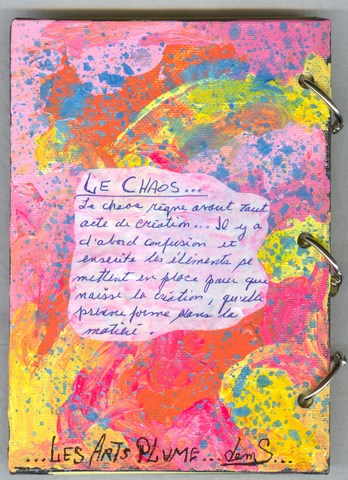 LE CHAOS...
Le chaos règne avant tout
acte de création... Il y a
d'abord confusion et
ensuite les éléments se
mettent en place pour que
naisse la création, qu'elle
prenne forme dans la
matière
...LES ARTS PLUME... JemS...